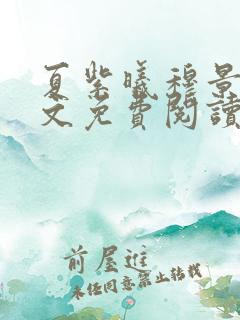 夏紫曦穆景
文免費閱讀
前屋進
未经同意禁止转载